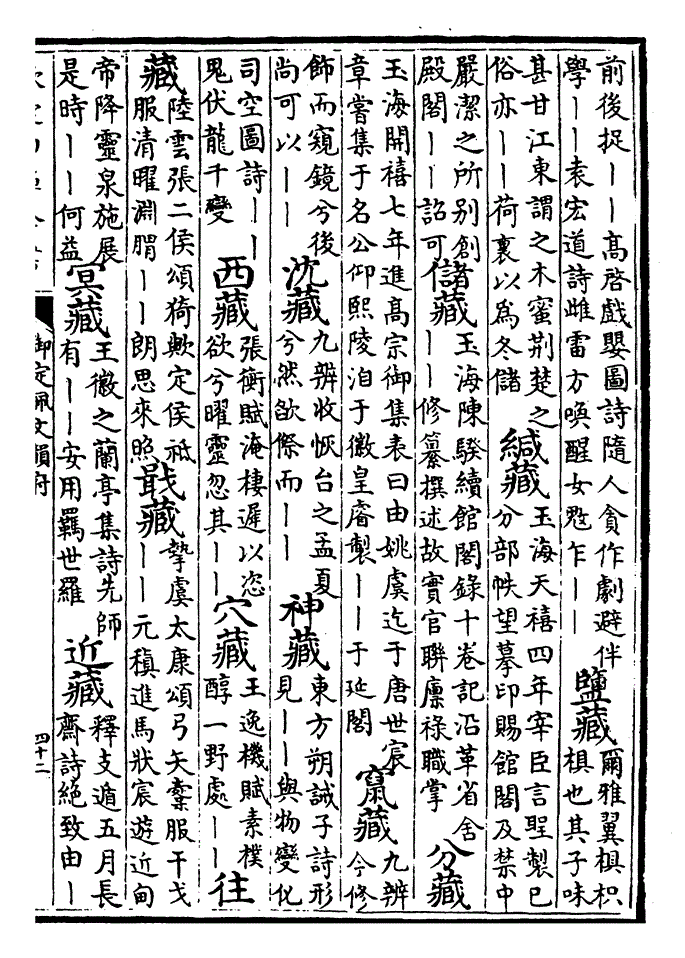 前後捉——高啓戲嬰圖詩隨人貪作劇避伴
學——袁宏道詩雌雷方喚醒女鬽乍——
鹽藏
爾雅翼椇枳
椇也其子味
甚甘江東謂之木蜜荆楚之
俗亦——荷裹以為冬儲
緘藏
玉海天禧四年宰臣言聖製已
分部帙望摹印賜館閣及禁中
嚴潔之所别創
殿閣——詔可
儲藏
玉海陳騤續館閣録十卷記沿革省舍
——修纂撰述故實官聯廪祿職掌
分藏
玉海開禧七年進髙宗御集表曰由姚虞迄于唐世宸
章嘗集于名公仰熙陵洎于徽皇睿製——于延閣
竄藏
九辨
今修
飾而窺鏡兮後
尚可以——
沈藏
九辨收恢台之孟夏
兮然欲傺而——
神藏
東方朔誡子詩形
見——與物變化
司空圖詩——
鬼伏龍千變
西藏
張衡賦淹棲遲以恣
欲兮曜靈忽其——
穴藏
王逸機賦素樸
醇一野處——
往
藏
陸雲張二侯頌猗歟定侯祗
服清曜淵䏰——朗思來照
戢藏
摯虞太康頌弓矢櫜服干戈
——元稹進馬狀宸遊近甸
帝降靈泉施展
是時——何益
冥藏
王徽之蘭亭集詩先師
有——安用羈世羅
近藏
釋支遁五月長
齋詩絶致由—
御定佩文韻府
四十二